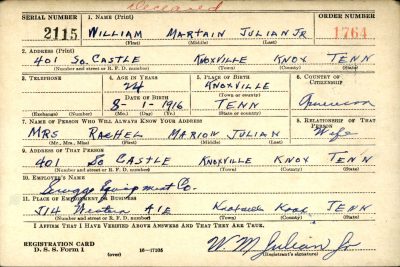 Deceased
SERIAL NUMBER 1. NAME (Print) ORDER NUMBER
2115 WILLIAM MARTAIN JULIAN JR 1764
(First) (Middle) (Last)
2. ADDRESS (Print)
401 So. CASTLE KNOXVILLE KNOX TENN
(Number and street or R. F. D. number) (Town) (County) (State)
3. TELEPHONE 4. AGE IN YEARS 5. PLACE OF BIRTH 6. COUNTRY OF CITIZENSHIP
24 KNOXVILLE
DATE OF BIRTH (Town or county)
8- 1-1916 TENN American
(Exchange) (Number) (Mo.) (Day) (Yr.) (State or country)
7. NAME OF PERSON WHO WILL ALWAYS KNOW YOUR ADDRESS 8. RELATIONSHIP OF THAT PERSON
MRS RACHEL MARION JULIAN Wife
(Mr., Mrs., Miss) (First) (Middle) (Last)
9. ADDRESS OF THAT PERSON
401 So CASTLE KNOXVILLE KNOX TENN
(Number and street or R. F. D. number) (Town) (County) (State)
10. EMPLOYER'S NAME
Scruggs Equipment Co.
11. PLACE OF EMPLOYMENT OR BUSINESS
514 Western AVE Knoxville Knox, TENN
(Number and street or R. F. D. number) (Town) (County) (State)
I AFFIRM THAT I HAVE VERIFIED ABOVE ANSWERS AND THAT THEY ARE TRUE.
REGISTRATION CARD
D. S. S. Form 1 (over) 16—17105 W M Julian Jr
(Registrant's signature)